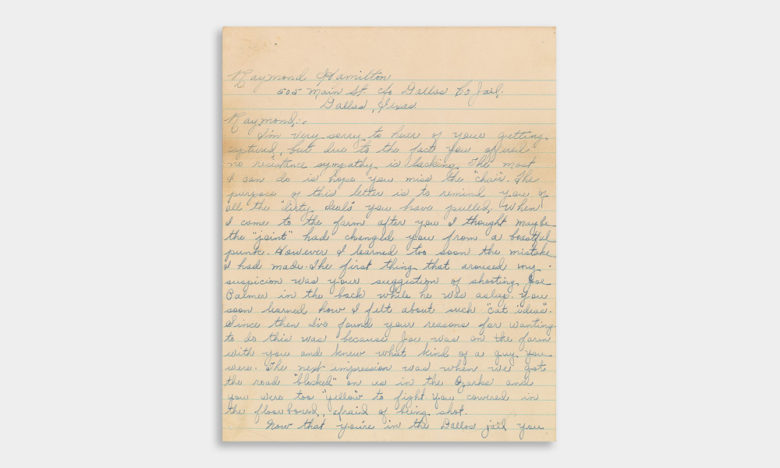 Raymond Hamilton
505 Main St. c/o Dallas Co Jail.
Dallas, Texas
Raymond:-
I'm very sorry to hear of your getting
captured, but due to the fact you offered
no resistance sympathy is lacking. The most
I can do is hope you miss the "chair". The
purpose of this letter is to remind you of
all the "dirty deals" you have pulled. When
I came to the farm after you I thought maybe
the "joint" had changed you from a boastful
punk. However I learned too soon the mistake
I had made. The first thing that aroused my
suspicion was your suggestion of shooting Joe
Palmer in the back while he was asleep. You
soon learned how I felt about such "cat ideas".
Since then I've found your reasons for wanting
to do this was because Joe was on the farm
with you and knew what kind of a guy you
were. The next impression was when we got
the road "blocked" on us in the Ozarks and
you were too "yellow" to fight you cowered in
the floorboard, afraid of being shot.
Now that you're in the Dallas jail you